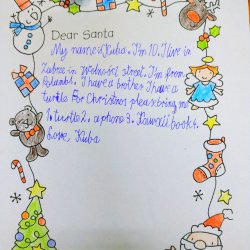 Dear Santa
My name is Kuba. I'm 10. I live in
Zabrze in Wolności street. I'm from
Poland. I have a brother I have a
turtle For Christmas please bring me
1. turtle 2. a phone 3. 4.
Love Kuba